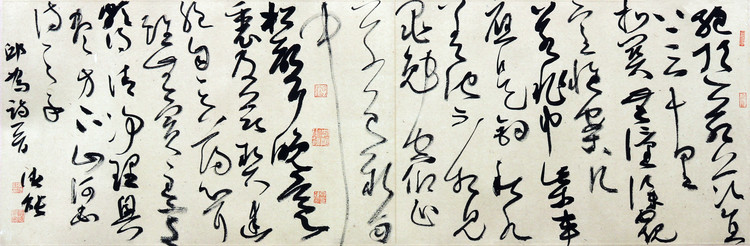 絕頂一茅茨直
上三十里
扣關無僮僕窺
室惟案几
若非巾柴車
應是釣秋水
差池不相見
黽勉空仰止
草色新雨
中
松聲晚窗
裏及茲契幽
絕自足蕩心耳
雖無賓主意
頗得清淨理興
盡方下山何必
待之子
邱為詩一首